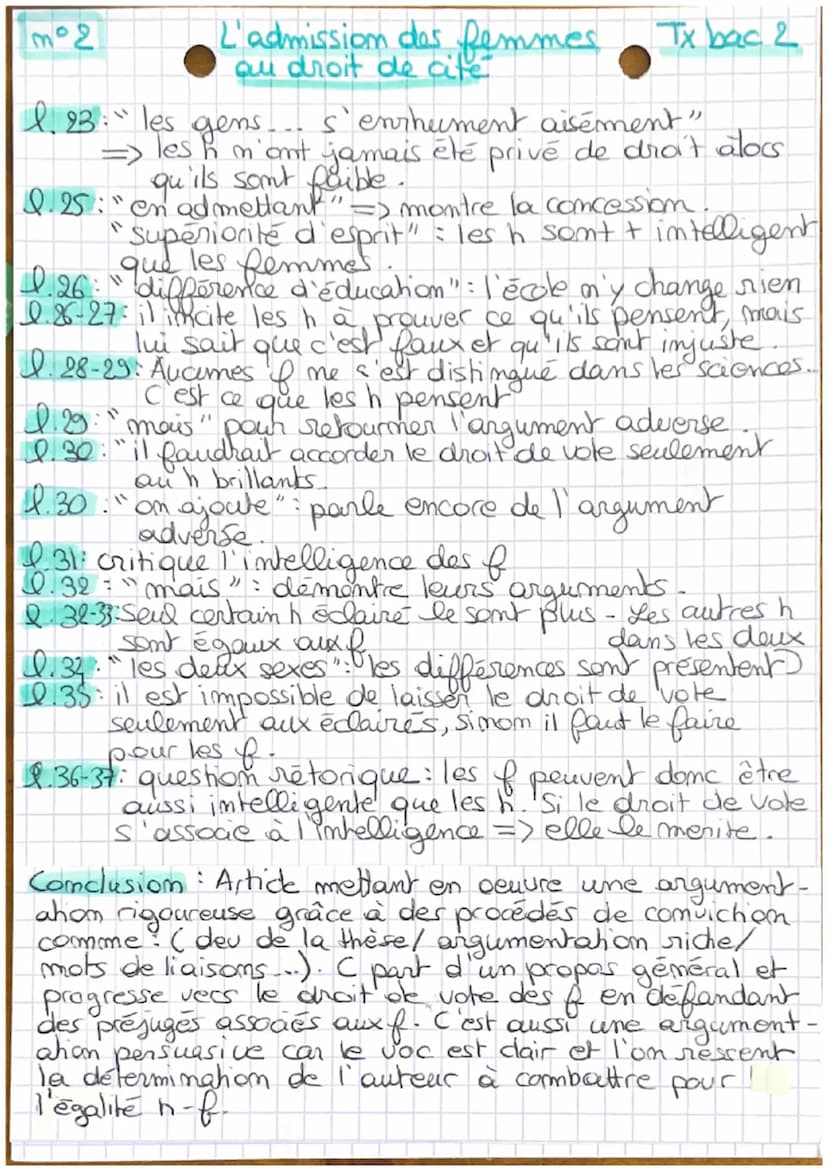 n°2
L'admission des femmes
au droit de cité
Tx bac 2
l. 23 : " les gens... s'enrhument aisément"
=> les h n'ont jamais été privé de droit alors
qu'ils sont faible.
l. 25 : " en admettant" => montre la concession.
" supériorité d'esprit" : les h sont + intelligent
que les femmes.
l. 26 : " différence d'éducation" : l'école n'y change rien
l. 26-27 : il incite les h à prouver ce qu'ils pensent, mais
lui sait que c'est faux et qu'ils sont injuste.
l. 28-29 : Aucunes f ne s'est distingué dans les sciences...
C'est ce que les h pensent
l. 29 : " mais" pour retourner l'argument adverse.
l. 30 : "il faudrait accorder le droit de vote seulement
au h brillants.
l. 30 : " on ajoute" : parle encore de l'argument
adverse.
l. 31 : critique l'intelligence des f
l. 32 : " mais" : démontre leurs arguments.
l. 32-33 : Seul certain h éclairé le sont plus - Les autres h
sont égaux aux f
dans les deux
l. 34 : " les deux sexes" : les différences sont présentent
l. 35 : il est impossible de laisser le droit de vote
seulement aux éclairés, sinon il faut le faire
pour les f.
l. 36-37 : question rétorique : les f peuvent donc être
aussi intelligente que les h. Si le droit de vote
s'associe à l'intelligence => elle le merite.
Conclusion : Article mettant en oeuvre une argument-
ation rigoureuse grâce à des procédés de conviction
comme : ( dev de la thèse/ argumentation riche/
mots de liaisons...). C part d'un propos général et
progresse vers le droit de vote des f en défandant
des préjugés associés aux f. C'est aussi une argument-
ation persuasive car le voc est clair et l'on ressent
la détermination de l'auteur à combattre pour
l'égalité h-f.